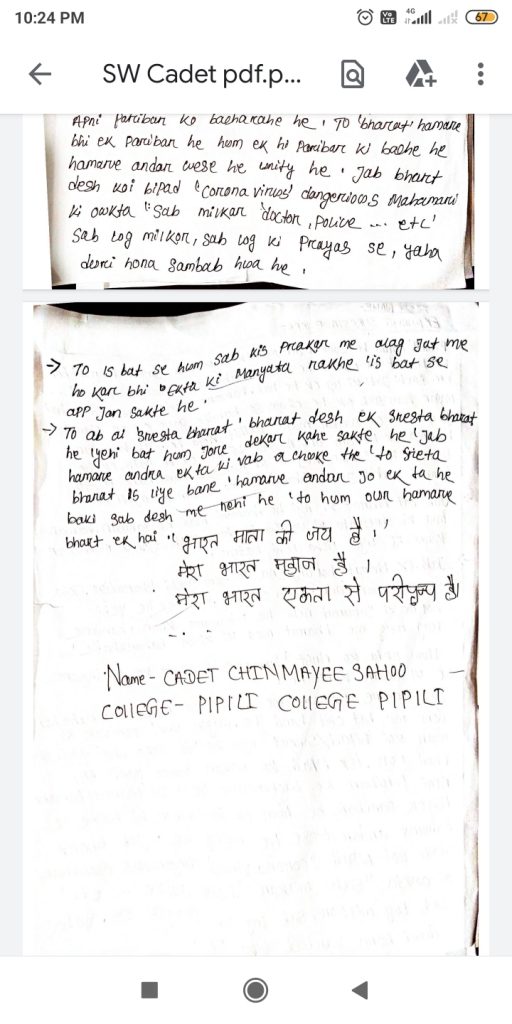 10:24 PM
4G
Vo
LTE
67
SW Cadet pdf.p...
Apni pariban ko bacharahe he, TO 'bharat' hamare
bhi ek pariban he hum ek hi paribar ki bache he
hamare andar wese he unity he. Jab bhart
desh koi bipad "corona virus' dangerious Mahamari
ki owkta "sab milkar 'doctor, police ... etc'
sab log milkor, sab log ki prayas se, yaha
hona sambab hua he,
→ TO is bat se hum sab kis prakar me alag jat me
ho kar bhi ekta ki Manyata rakhe 'is bat se
app Jan sakte he'
→ To ab al 'sresta bharat' bharat desh ek sresta bharat
he 'yehi bat hum jore dekar kahe sakte he 'Jab
hamare andra ekta ki vab a the 'to
bharat is liye bane 'hamare andar jo ek ta he
baki sab desh me nehi he 'to hum our hamare
bhart ek hai "भारत माता की जय है।'
मेरा भारत महान है।
मेरा भारत एकता से है।
Name - CADET CHINMAYEE SAHOO
COllEGE - PIPILI COllEGE PIPILI